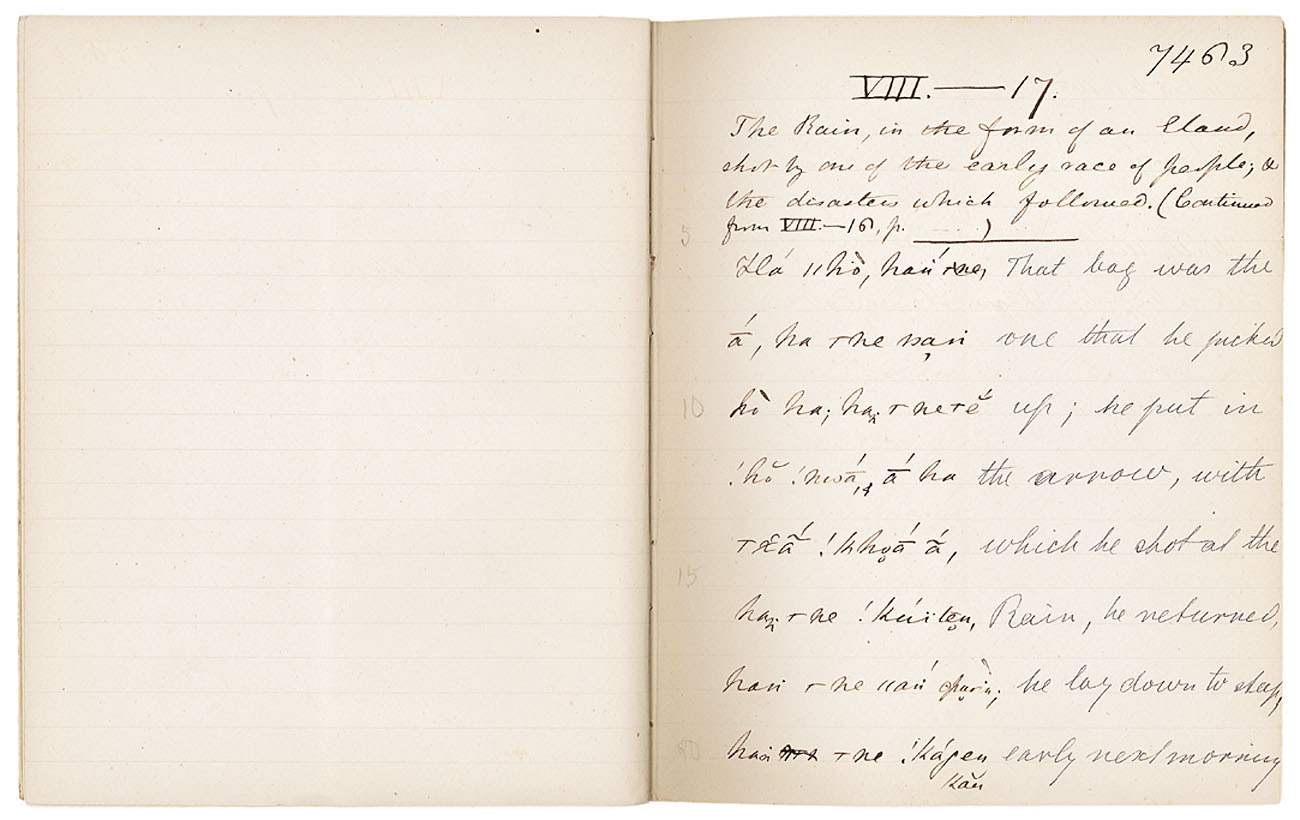 7463
VIII. — 17.
The Rain, in the form of an Eland,
shot by one of the early race of people; &
the disasters which followed. (Continued
from VIII. — 16, p. )
5
Há ǁhò, haṅ́ ꞇne, That bag was the
á̄, ha ꞇne ṅạṅ one that he picked
10 hò ha; haṅ ꞇne ꞇĕ́ up; he put in
!hŏ !nwá̄, á̄ ha the arrow, with
ꞇxā̃́ !khwá̄ ā̃́, which he shot at the
15
haṅ ꞇne !kúïten, Rain, he returned,
haṅ ꞇne ǁaṅ́ he lay down to sleep,
20 haṅ ꞇne !kágen early next morning
kăṅ